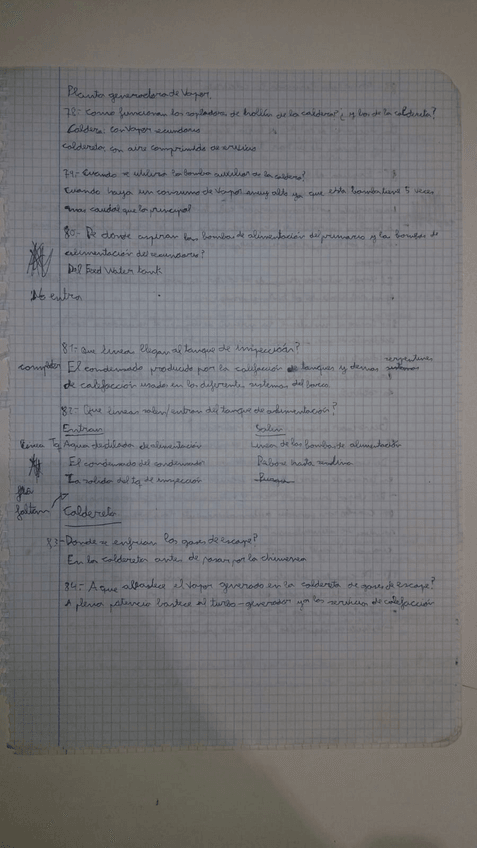 Planta generadora de vapor
78- Como funcionan los sopladores de hollín de la caldera? ¿y los de la caldereta?
Caldera: con vapor secundario
caldereta: con aire comprimido de
79- Cuando se utiliza la bomba auxiliar de la caldera?
Cuando haya un consumo de vapor muy alto ya que esta bomba tiene 5 veces
mas caudal que la principal
80- De donde aspiran las bombas de alimentación del primario y la bomba de
alimentación del secundario?
Del Feed Water tank
No entra
81- Que lineas llegan al tanque de inspección?
completar El condensado producido por la calefacción de tanques y demas
de calefacción usado en los diferentes sistemas del barco
82- Que lineas salen/entran del tanque de alimentación?
Entran Salen
Agua destilada de alimentación Lineas de las bombas de alimentación
El condensado del condensador Rebose hasta sentina
La salida del Tq de inspección Purga
faltan Caldereta
83- Donde se enfrian los gases de escape?
En las calderetas antes de pasar por la chimenea
84- A que abastece el vapor generado en la caldereta de gases de escape?
A plena potencia bastece al turbo-generador y a los servicios de calefacción